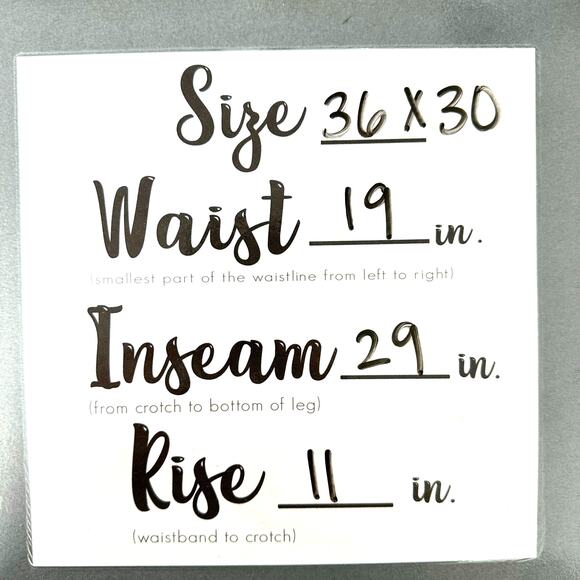 Size 36 X 30
Waist 19 in.
(smallest part of the waistline from left to right)
Inseam 29 in.
(from crotch to bottom of leg)
Rise 11 in.
(waistband to crotch)